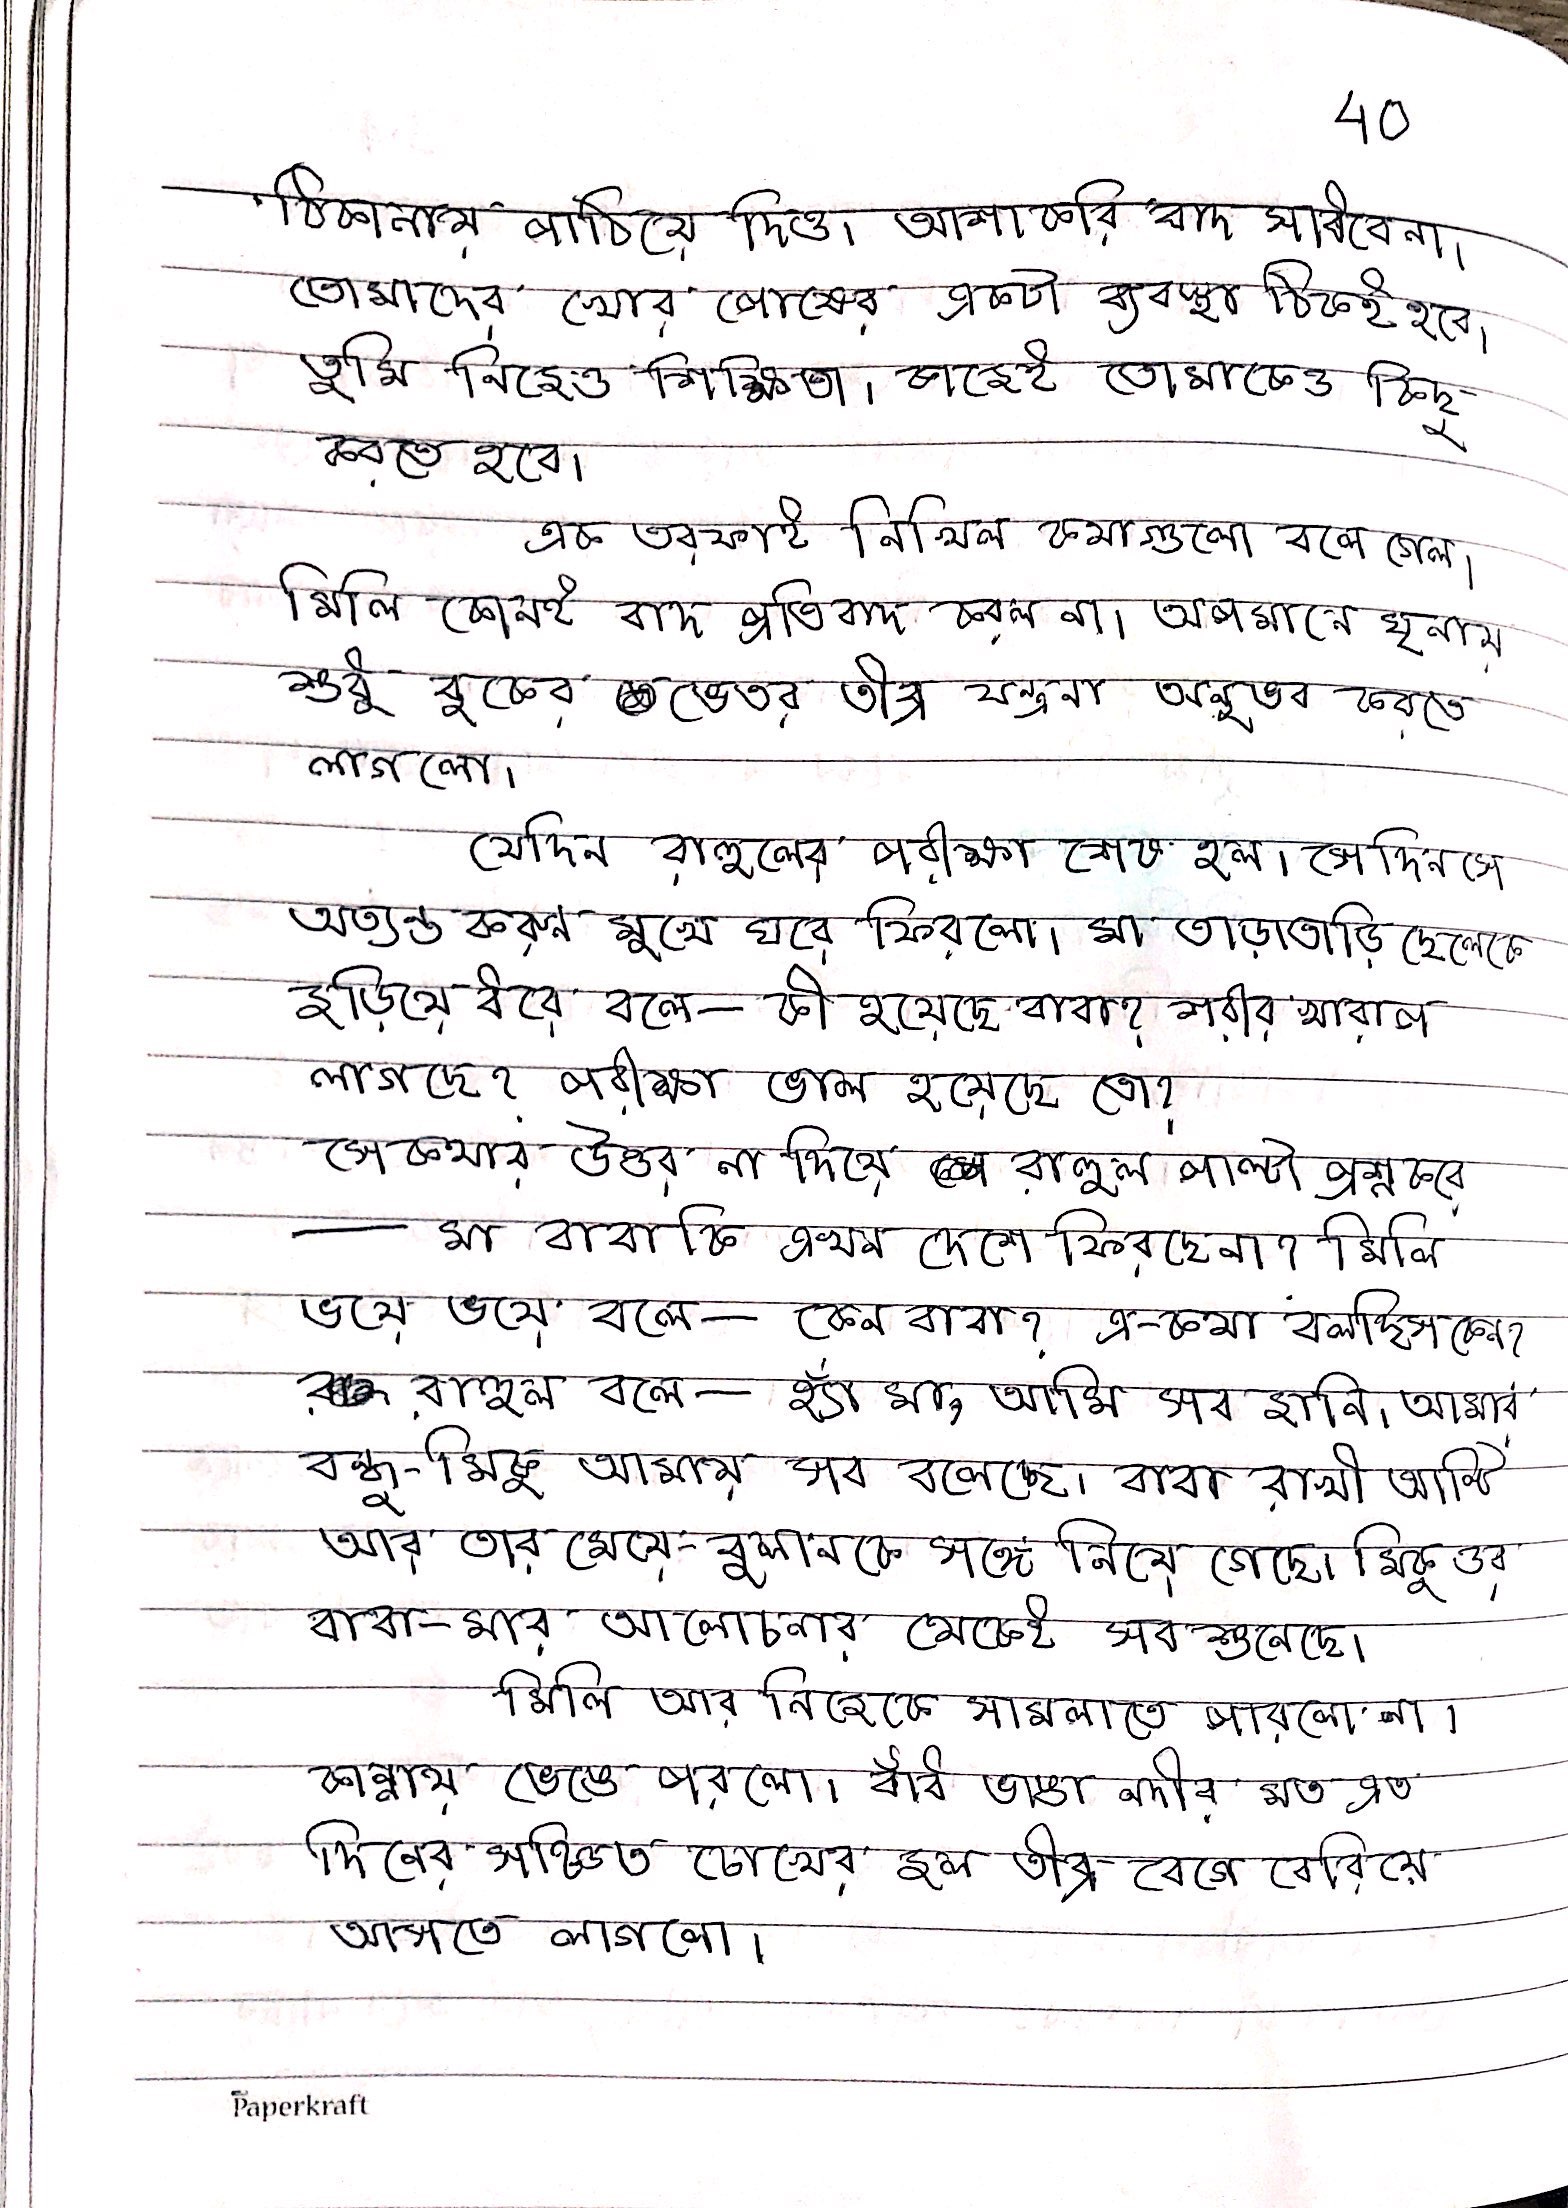 40
ঠিকানায় পাঠিয়ে দিও। আশাকরি বাদ সাধবেনা।
তোমাদের খোর পোষের একটা ব্যবস্থা ঠিকই হবে।
তুমি নিজেও শিক্ষিতা। কাজেই তোমাকেও কিছু
করতে হবে।
এক তরফাই নিখিল কথাগুলো বলে গেল।
মিলি কোনই বাদ প্রতিবাদ করল না। অপমানে ঘৃনায়
শুধু বুকের ভেতর তীব্র যন্ত্রনা অনুভব করতে
লাগলো।
যেদিন রাহুলের পরীক্ষা শেষ হল। সেদিন সে
অত্যন্ত করুন মুখে ঘরে ফিরলো। মা তাড়াতাড়ি ছেলেকে
জড়িয়ে ধরে বলে— কী হয়েছে বাবা? শরীর খারাপ
লাগছে? পরীক্ষা ভাল হয়েছে তো?
সেকথার উত্তর না দিয়ে রাহুল পাল্টা প্রশ্ন করে
— মা বাবা কি এখন দেশে ফিরছেনা? মিলি
ভয়ে ভয়ে বলে— কেন বাবা? এ-কথা বলছিস কেন?
রাহুল বলে— হ্যাঁ মা, আমি সব জানি। আমার
বন্ধু-মিকু আমায় সব বলেছে। বাবা রাখী আন্টি
আর তার মেয়ে-বুলানকে সঙ্গে নিয়ে গেছে। মিকু ওর
বাবা-মার আলোচনার থেকেই সব শুনেছে।
মিলি আর নিজেকে সামলাতে পারলো না।
কান্নায় ভেঙে পরলো। বাঁধ ভাঙা নদীর মত এত
দিনের সঞ্চিত চোখের জল তীব্র বেগে বেরিয়ে
আসতে লাগলো।
Paperkraft